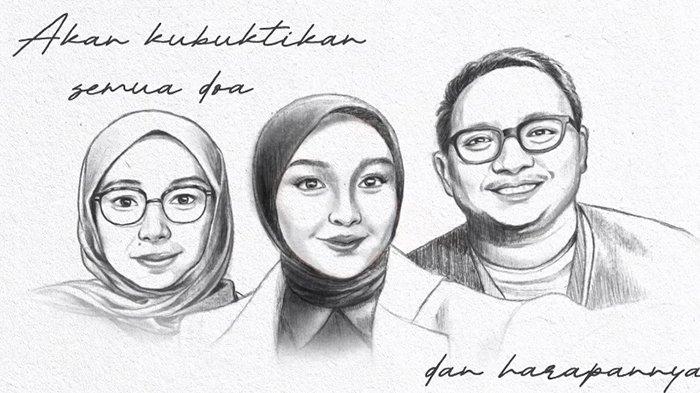 Akan kubuktikan
semua doa
dan harapannya